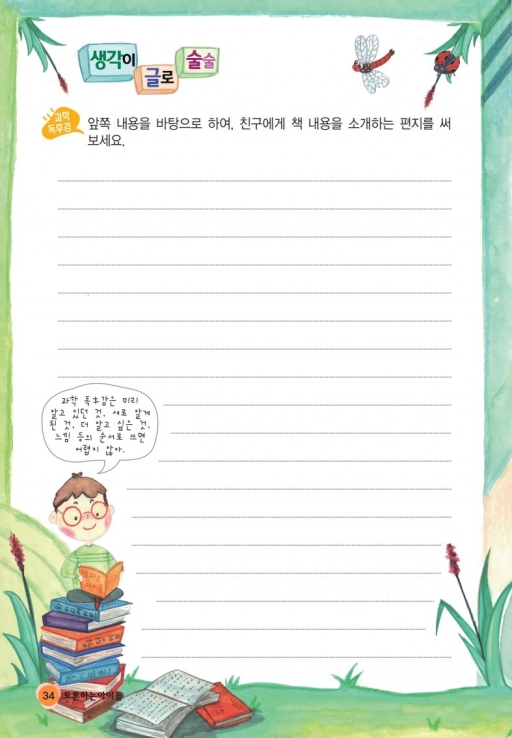 생각이
글로
술술
과학
독후감
앞쪽 내용을 바탕으로 하여, 친구에게 책 내용을 소개하는 편지를 써
보세요.
과학 독후감은 미리
알고 있던 것, 새로 알게
된 것, 더 알고 싶은 것,
느낌 등의 순서로 쓰면
어렵지 않아.
34 토론하는아이들